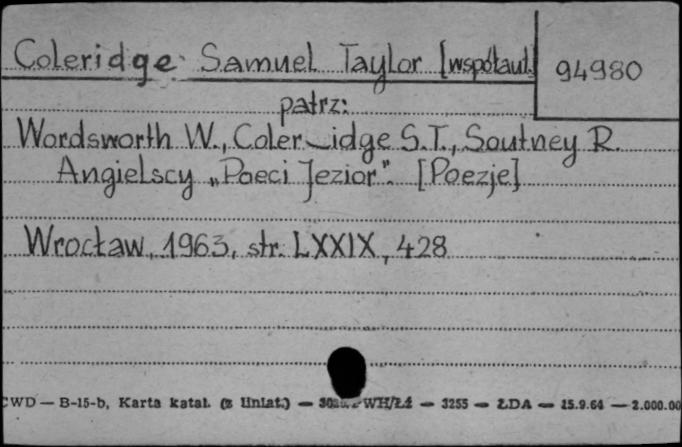 Coleridge Samuel Taylor [współaut.]
94980
patrz:
Wordsworth W., Coleridge S.T., Soutney R.
Angielscy „Poeci Jezior". [Poezje]
Wrocław, 1963, str. LXXIX, 428
CWD — B-15-b, Karta katal. (z liniat.) — WH/Łź — 3255 — ŁDA — 15.9.64 — 2.000.00